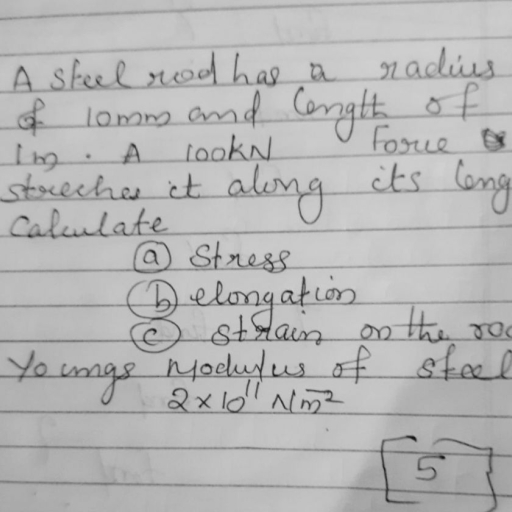 A steel rod has a radius
of 10mm and length of
1m. A 100KN Force
streches it along its leng
Calculate
(a) Stress
(b) elongation
(c) strain on the roo
Youngs Modulus of steel
2x10^11 N/m^-2
[5]